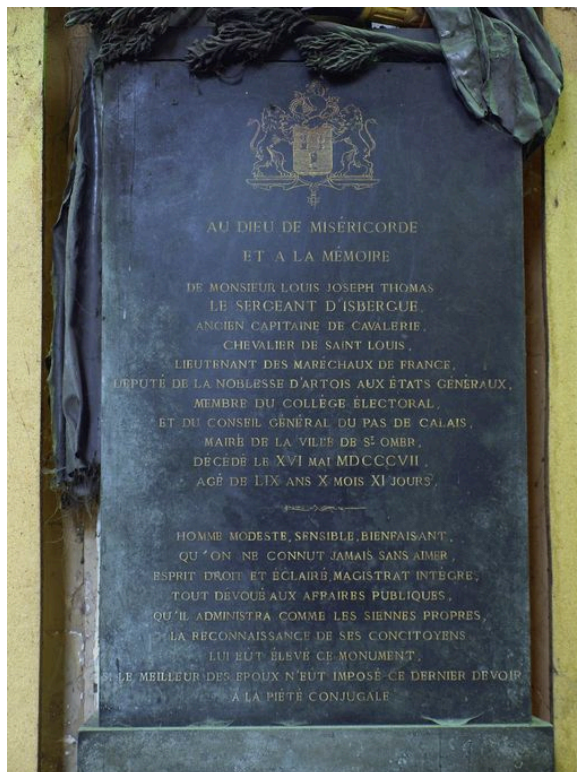 AU DIEU DE MISÉRICORDE
ET A LA MÉMOIRE
DE MONSIEUR LOUIS JOSEPH THOMAS
LE SERGEANT D'ISBERGUE,
ANCIEN CAPITAINE DE CAVALERIE,
CHEVALIER DE SAINT LOUIS,
LIEUTENANT DES MARÉCHAUX DE FRANCE,
DÉPUTÉ DE LA NOBLESSE D'ARTOIS AUX ÉTATS GÉNÉRAUX,
MEMBRE DU COLLÈGE ÉLECTORAL,
ET DU CONSEIL GÉNÉRAL DU PAS DE CALAIS,
MAIRE DE LA VILLE DE ST OMER,
DÉCÉDÉ LE XVI MAI MDCCCVII,
AGÉ DE LIX ANS X MOIS XI JOURS,
HOMME MODESTE, SENSIBLE, BIENFAISANT,
QU'ON NE CONNUT JAMAIS SANS AIMER,
ESPRIT DROIT ET ÉCLAIRÉ, MAGISTRAT INTÈGRE,
TOUT DÉVOUÉ AUX AFFAIRES PUBLIQUES,
QU'IL ADMINISTRA COMME LES SIENNES PROPRES,
LA RECONNAISSANCE DE SES CONCITOYENS
LUI EUT ÉLEVÉ CE MONUMENT,
LE MEILLEUR DES ÉPOUX N'EUT IMPOSÉ CE DERNIER DEVOIR
A LA PIÉTÉ CONJUGALE